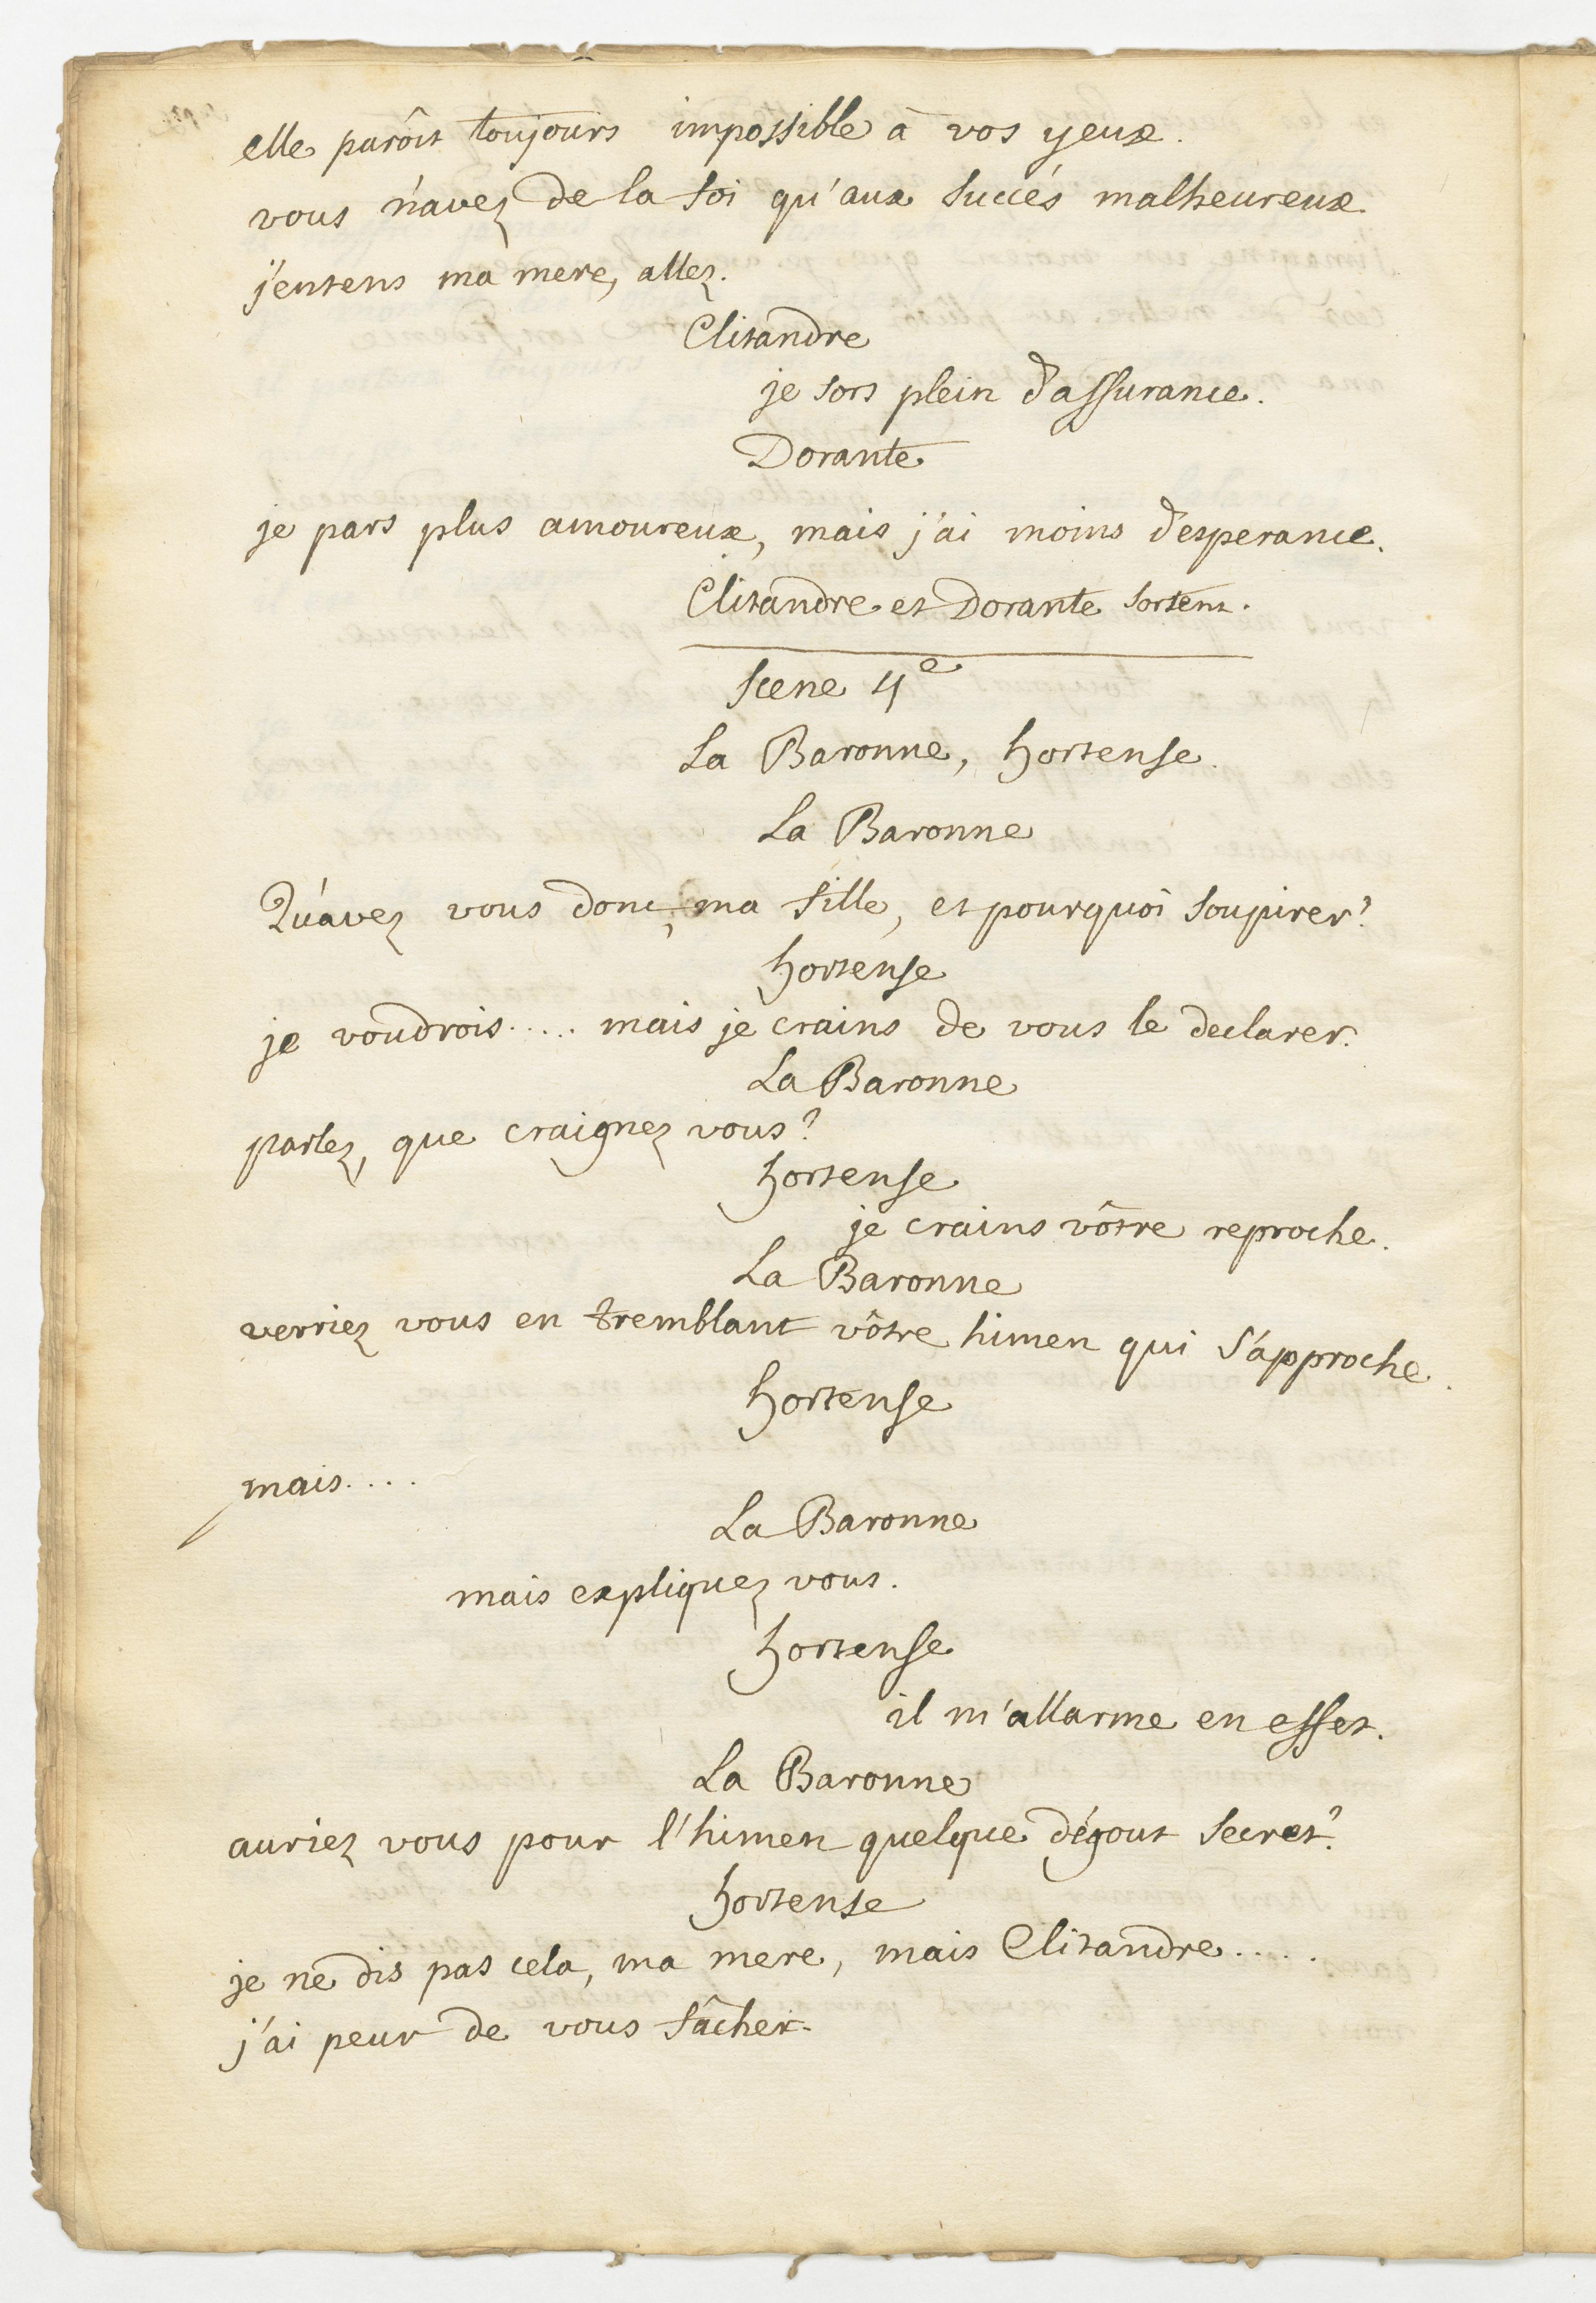 elle parôit toujours impossible à vos yeux.
vous n'avez de la foi qu'aux succés malheureux
j'entens ma mere, allez.
Clitandre
je sors plein d'assurance.
Dorante
je pars plus amoureux, mais j'ai moins d'esperance.
Clitandre et Dorante sortent.
Scene 4e
La Baronne, hortense.
La Baronne
Qu'avez vous donc, ma fille, et pourquoi soupirer?
hortense
je voudrois..... mais je crains de vous le declarer.
La Baronne
parlez, que craignez vous?
hortense
je crains vôtre reproche.
La Baronne
verriez vous en tremblant vôtre himen qui s'approche.
hortense
mais....
La Baronne
mais expliquez vous.
hortense
il m'allarme en effet.
La Baronne
auriez vous pour l'himen quelque dégout secret?
hortense
je ne dis pas cela, ma mere, mais Clitandre.....
j'ai peur de vous fâcher.